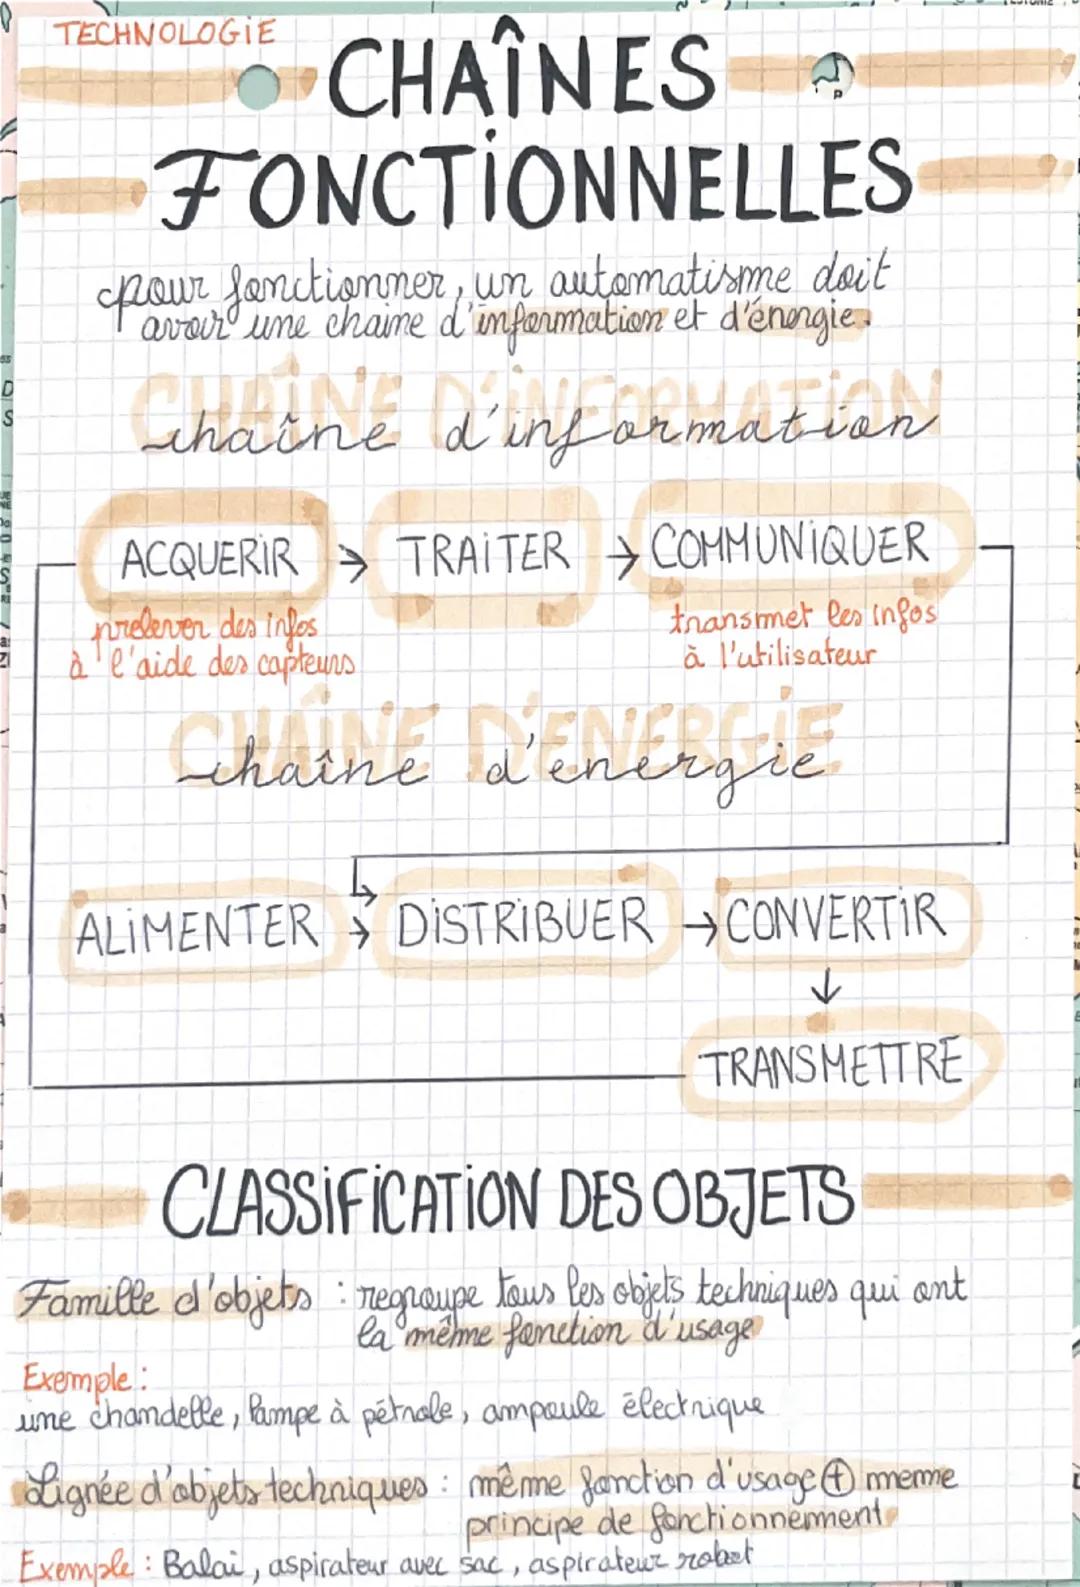 TECHNOLOGIE
CHAÎNES
FONCTIONNELLES
pour fonctionner, un automatisme doit
avoir une chaine d'information et d'énergie.
CHAÎNE D'INFORMATION
chaîne d'information
ACQUERIR → TRAITER → COMMUNIQUER
prelever des infos
à l'aide des capteurs
transmet les infos
à l'utilisateur
CHAÎNE D'ENERGIE
chaîne d'énergie
ALIMENTER → DISTRIBUER → CONVERTIR
TRANSMETTRE
CLASSIFICATION DES OBJETS
Famille d'objets : regroupe tous les objets techniques qui ont
la même fonction d'usage
Exemple :
une chandelle, lampe à pétrole, ampoule électrique
Lignée d'objets techniques : même fonction d'usage + meme
principe de fonctionnement
Exemple : Balai, aspirateur avec sac, aspirateur robot